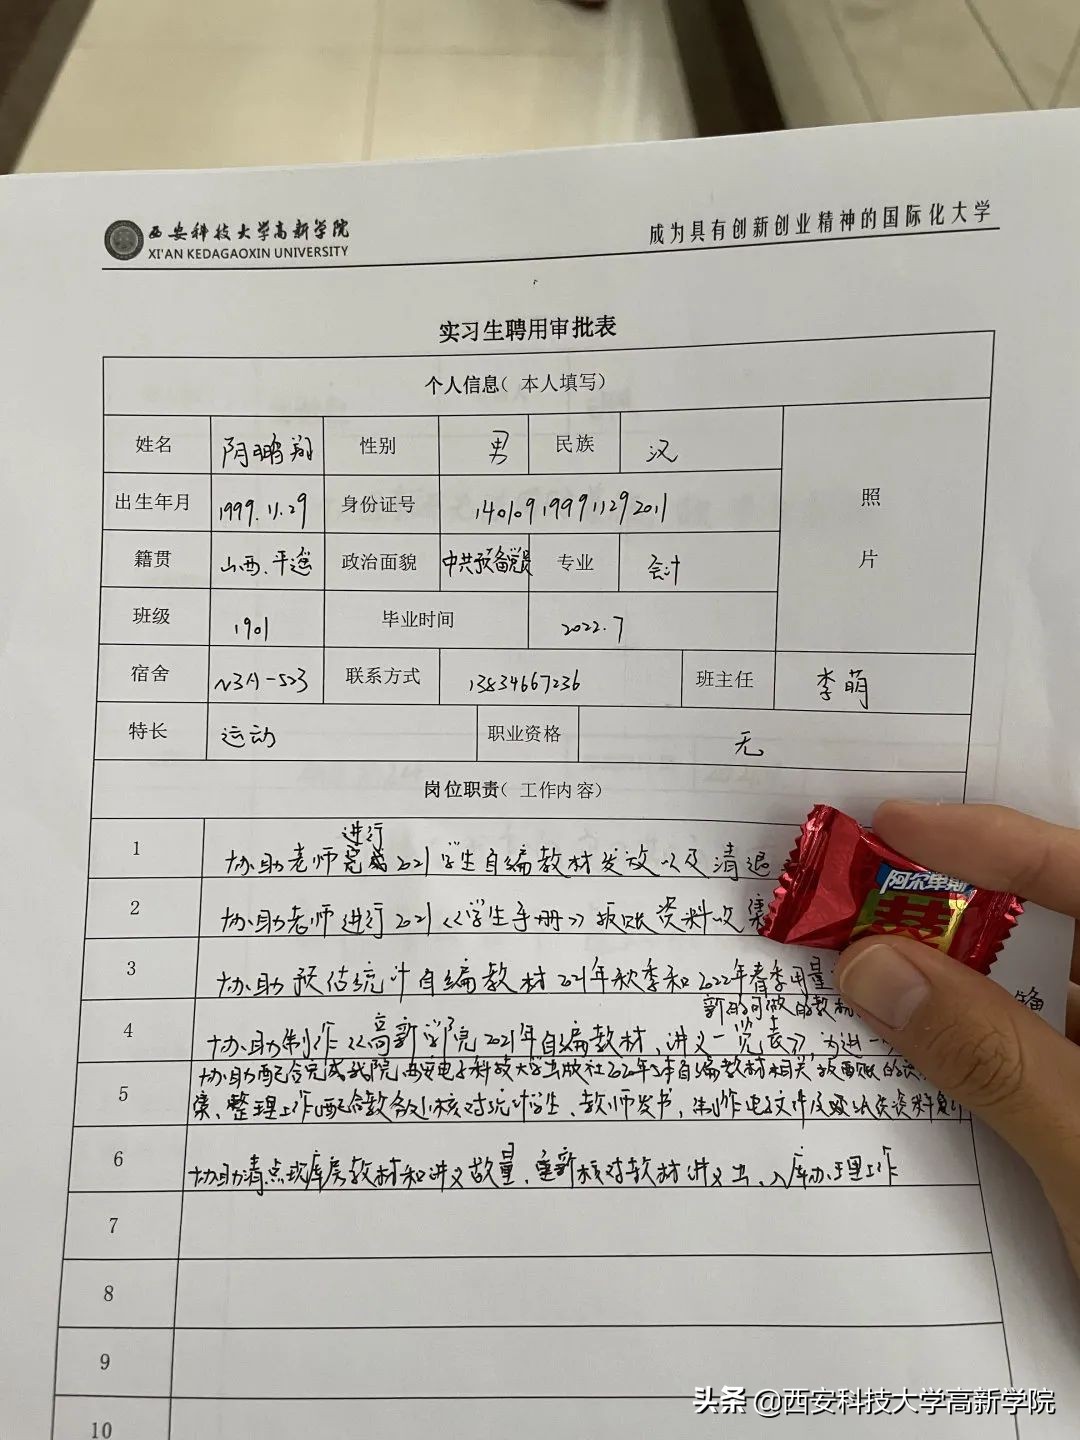 西安科技大学高新学院
XI'AN KEDAGAOXIN UNIVERSITY
成为具有创新创业精神的国际化大学
实习生聘用审批表
个人信息（本人填写）
姓名 阴鹏翔 性别 男 民族 汉
照片
出生年月 1999.11.29 身份证号 140109199911292011
籍贯 山西、平遥 政治面貌 中共预备党员 专业 会计
班级 1901 毕业时间 2022.7
宿舍 N3A-523 联系方式 13834667236 班主任 李萌
特长 运动 职业资格 无
岗位职责（工作内容）
进行
1 协助老师完成2021学生自编教材发放以及清退
2 协助老师进行2021《学生手册》报账资料收集
3 协助预估统计自编教材2021年秋季和2022年春季用量
新的可做的教材
备
4 协助制作《高新学院2021年自编教材、讲义一览表》，为进一
5 协助配合完成我院西安电子科技大学出版社2022年3本自编教材相关
集、整理工作，配合教务处核对统计学生、教师发书，制作电子文件及纸质资料
6 协助清点现库房教材和讲义数量，重新核对教材讲义出、入库办理工作
7
8
9
10
阿尔卑斯
头条 @西安科技大学高新学院